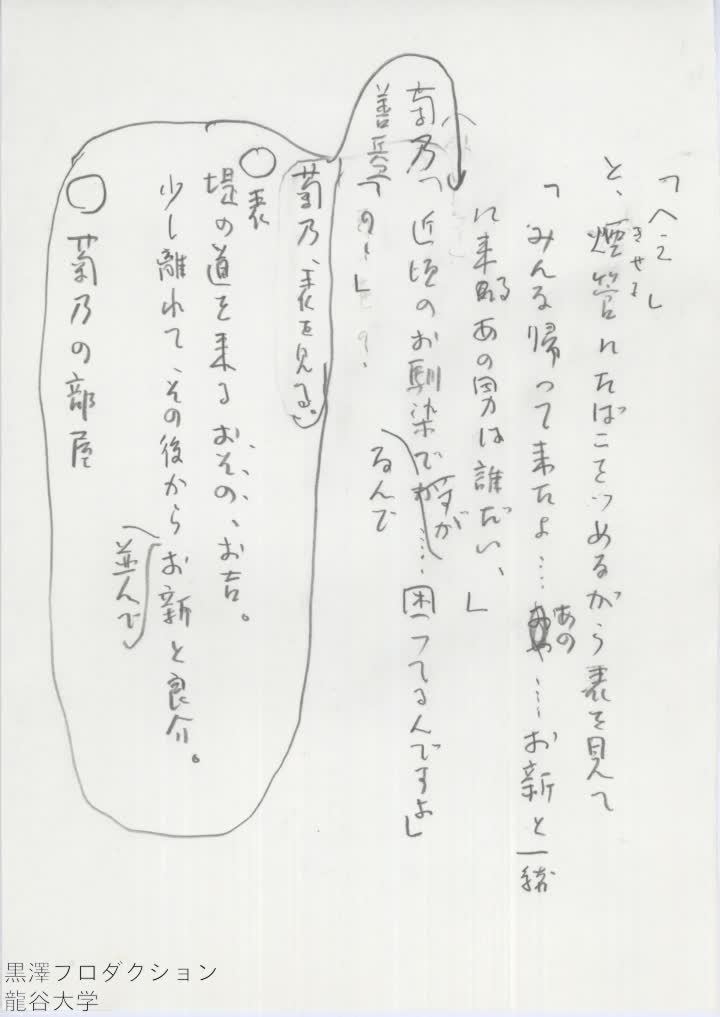 「へえ」
と、煙管にたばこをつめながら表を見て
きせる
「みんな帰って来たよ……あの……お新と一緒
に来るあの男は誰だい」
菊乃「近頃のお馴染ですが……困ってるんですよ」
なんで
善兵「の」
菊乃、表を見る。
○表
堤の道を来るおその、お吉。
少し離れて、その後からお新と良介。
並んで
○菊乃の部屋
黒澤プロダクション
龍谷大学